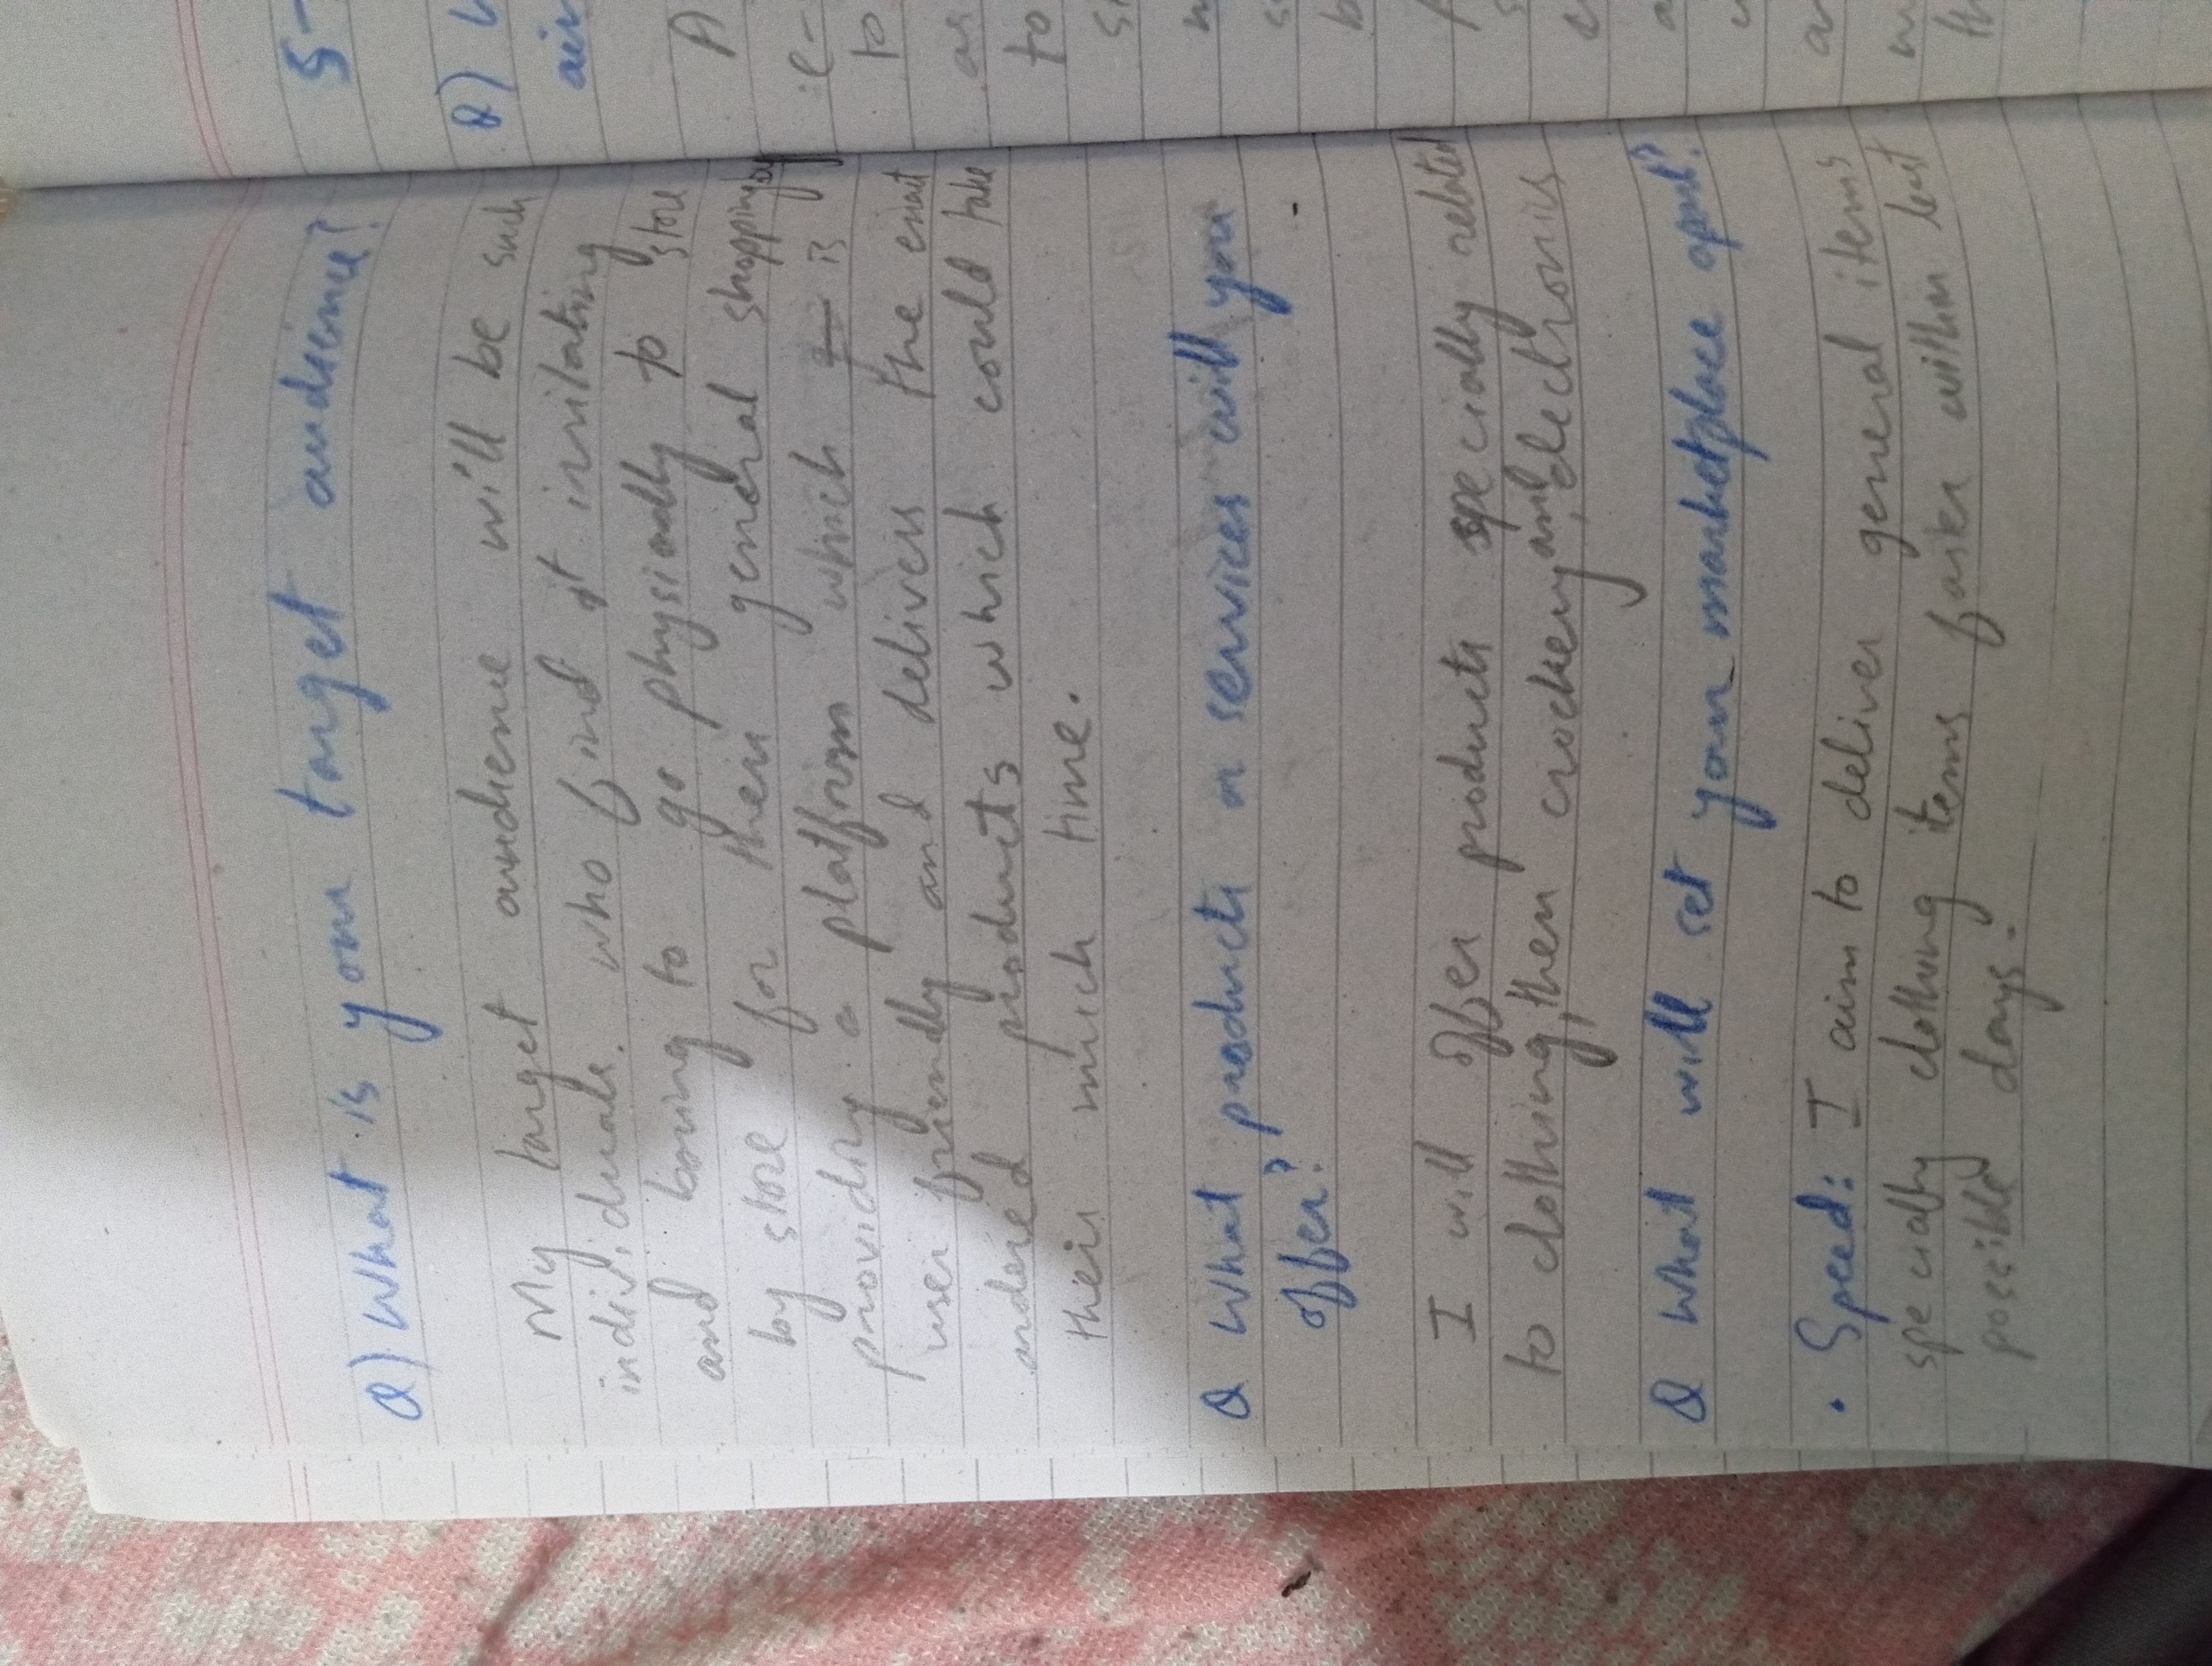 Q) What is your target audience?
My target audience will be such
individuals. who find it irritating
and boring to go physically to store
by store for their general shopping by
providing a platform which is
user friendly and delivers the exact
ordered products which could take
their much time.
Q What products or services will you
offer?
I will offer products specially related
to clothing, then crockery and, electronics
Q What will set your marketplace apart?
• Speed: I aim to deliver general items
specially clothing items faster within least
possible days.
S-
Q)
A
e-
to
as
to